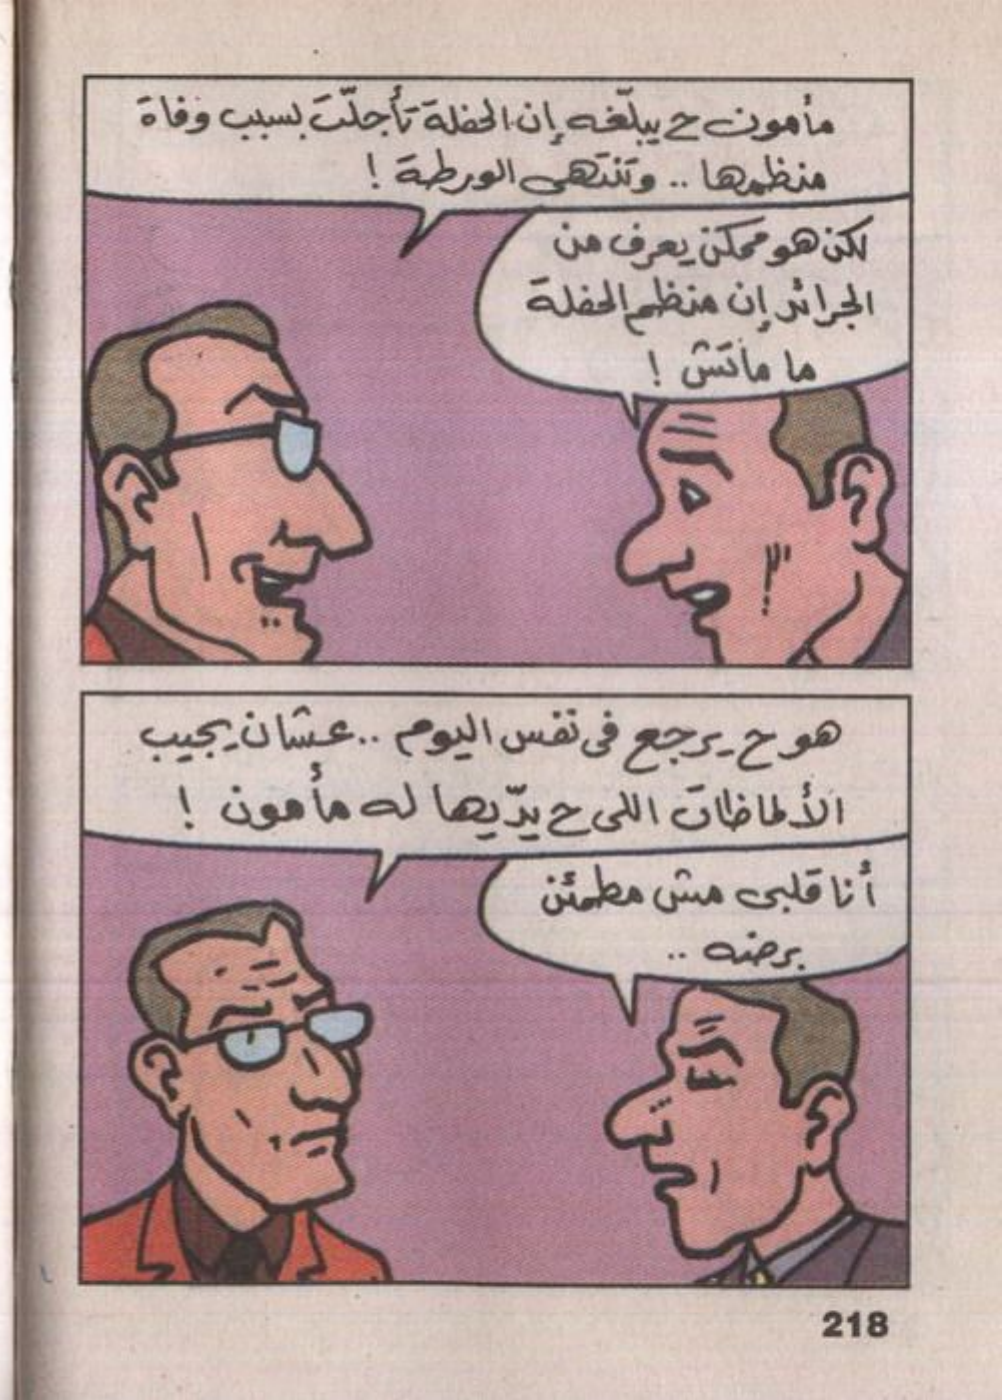 مأمون ح يبلّغه إن الحفلة تأجلّت بسبب وفاة
منظمها .. وتنتهى الورطة !
لكن هو ممكن يعرف من
الجرائد إن منظم الحفلة
ما ماتش !
هو ح يرجع فى نفس اليوم .. عشان يجيب
الألماظات اللى ح يدّيها له مأمون !
أنا قلبى مش مطمئن
برضه ..
218